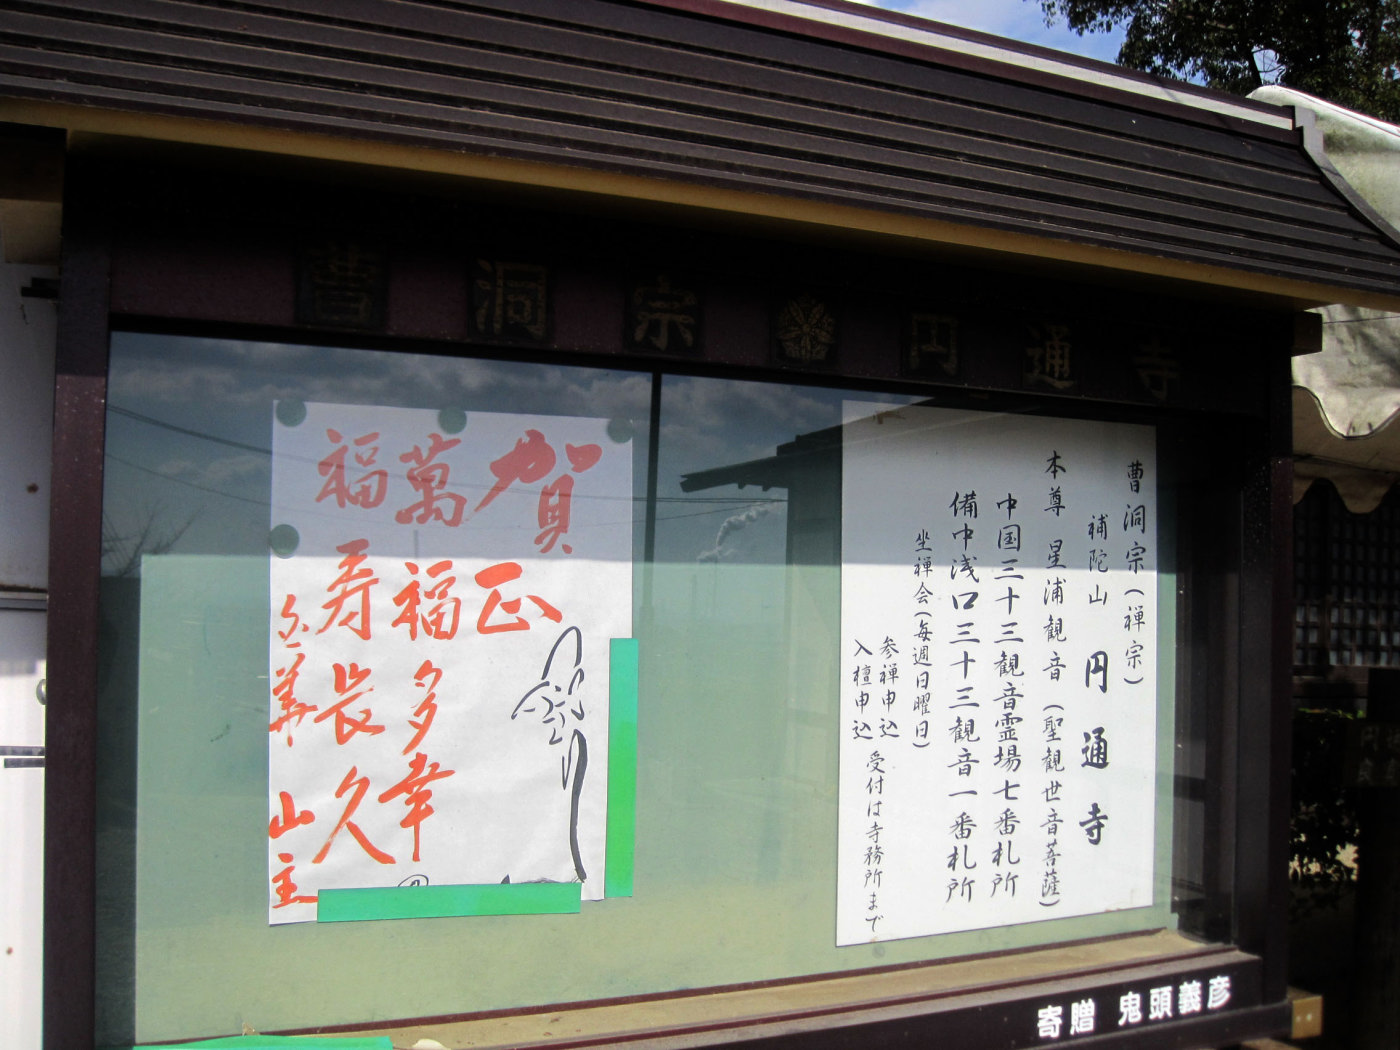 曹洞宗 円通寺
曹洞宗(禅宗)
補陀山 円通寺
本尊 星浦観音(聖観世音菩薩)
中国三十三観音霊場七番札所
備中浅口三十三観音一番札所
坐禅会(毎週日曜日)
参禅申込
入檀申込
受付は寺務所まで
賀正
萬福多幸
福寿長久
山主
寄贈 鬼頭義彦